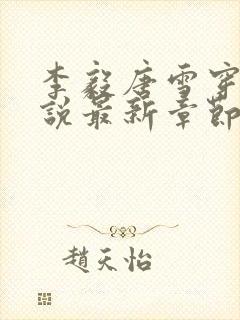 李毅唐雪穿
說最新章節
趙天怡